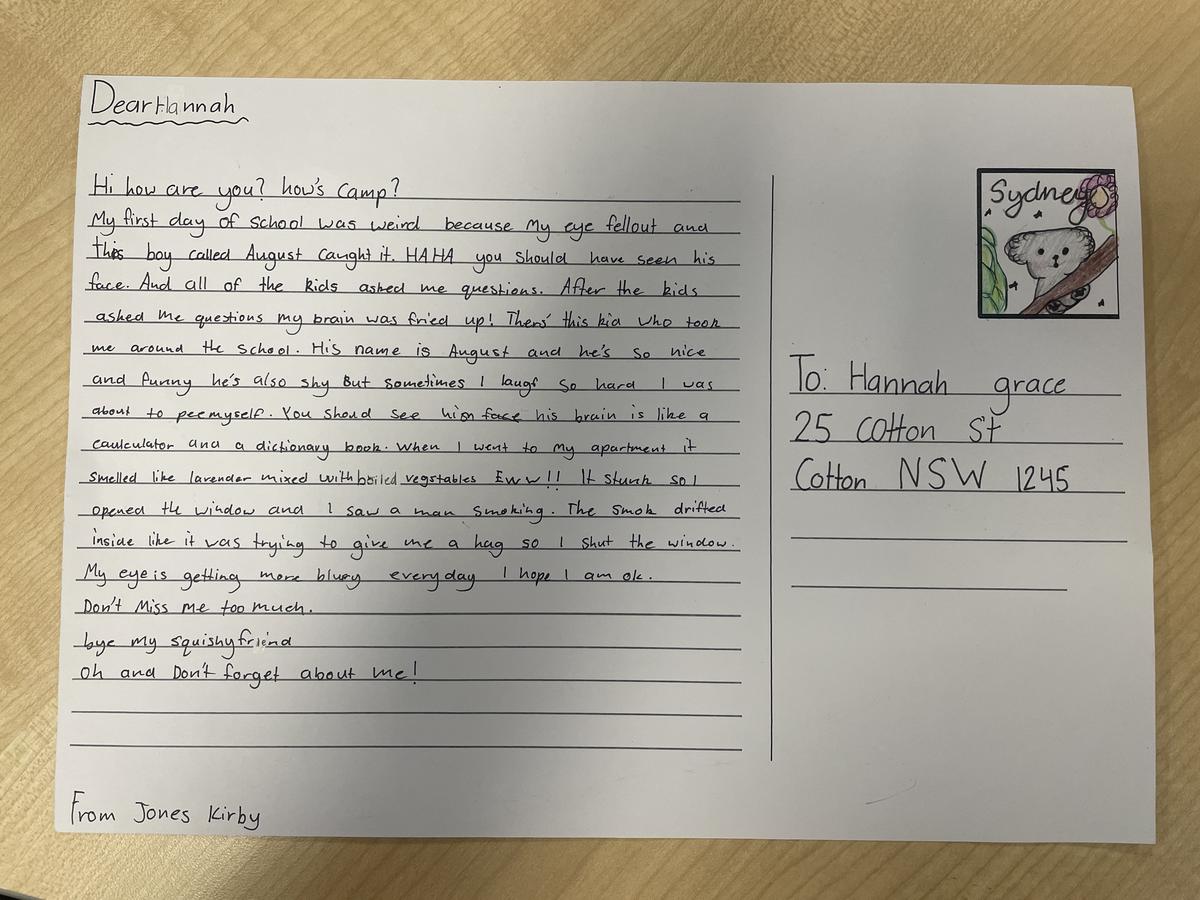 Dear Hannah
Hi how are you? how's camp?
My first day of school was weird because My eye fellout and
this boy called August caught it. HAHA you should have seen his
face. And all of the kids asked me questions. After the kids
asked me questions my brain was fried up! Thers' this kid who took
me around the school. His name is August and he's so nice
and funny he's also shy But sometimes I laugh so hard I was
about to pee myself. You shoud see his brain is like a
caulculator and a dictionary book. When I went to my apartment it
smelled like lavender mixed with boiled vegstables Eww!! It stunk so I
opened the window and I saw a man smoking. The smok drifted
inside like it was trying to give me a hug so I shut the window.
My eye is getting more bluey everyday I hope I am ok.
Don't Miss me too much.
bye my squishy friend
Oh and Don't forget about me!
From Jones Kirby
Sydney
To: Hannah grace
25 Cotton St
Cotton NSW 1245